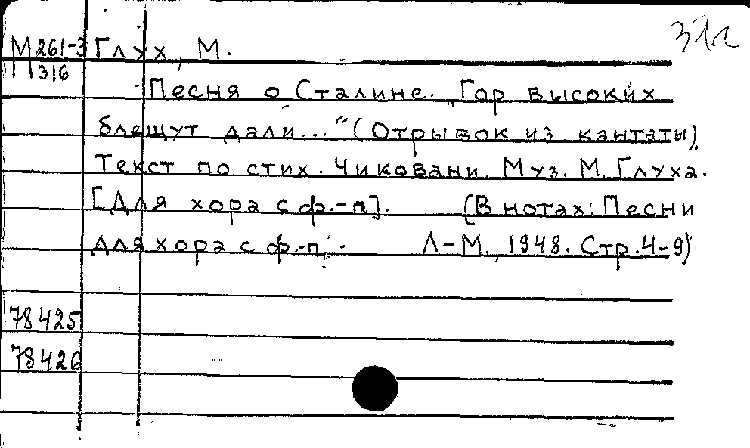 31г
М261-3 Глух, М.
316
Песня о Сталине. „Гор высоких
блещут дали..." (Отрывок из кантаты)
Текст по стих. Чиковани. Муз. М. Глуха.
[Для хора с ф.-п]. (В нотах: Песни
для хора с ф.-п. Л-М., 1948. Стр. 4-9)
78425
78426